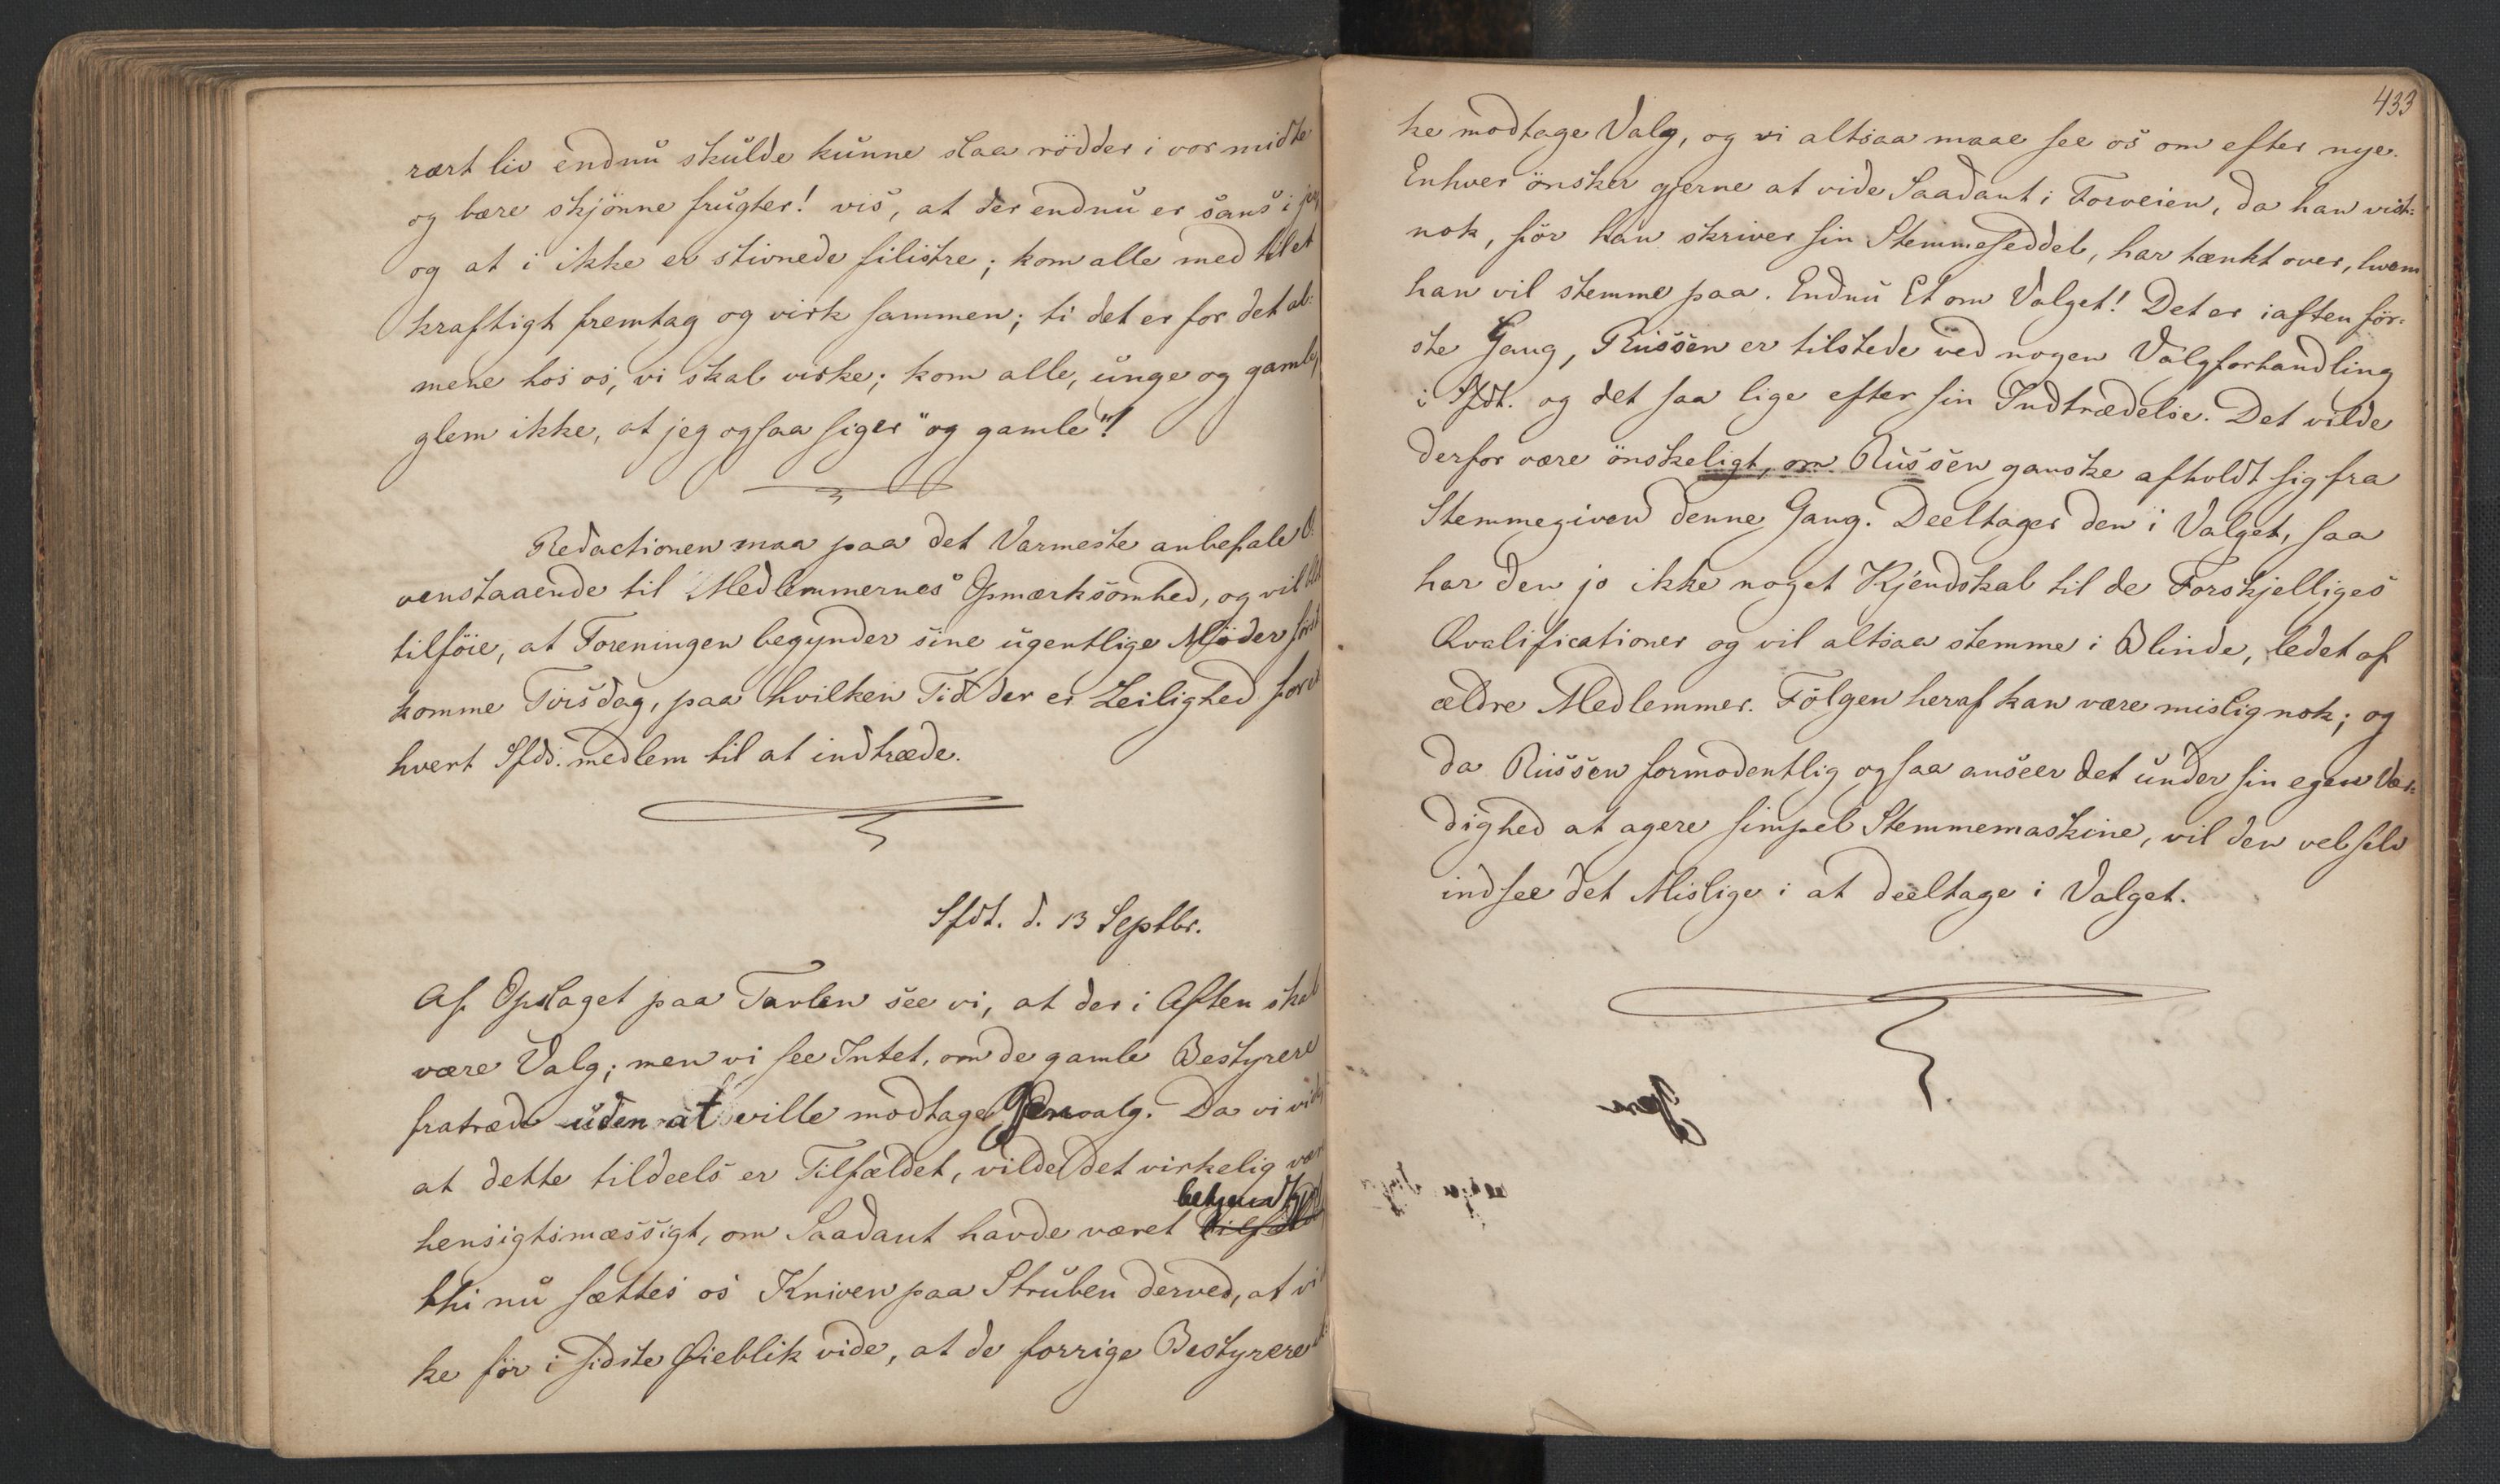 rært liv endnu skulde kunne slaa rødder i vor midte
og bære skjönne frugter! vis, at der endnu er sans i jer,
og at i ikke er stivnede filistre; kom alle med til et
kraftigt fremtag og virk sammen; ti det er for det al-
mene hos os, vi skal virke; kom alle, unge og gamle,
glem ikke, at jeg ogsaa siger "og gamle"!
Redactionen maa paa det Varmeste anbefale O-
venstaaende til Medlemmernes Opmærksomhed, og vil blot
tilföie, at Foreningen begynder sine ugentlige Möder först-
komme Tirsdag, paa hvilken Tid der er Leilighed for et-
hvert Sfds. medlem til at indtræde.
Sfdt. d. 13 Septbr.
Af Opslaget paa Tavlen see vi, at der i Aften skal
være Valg; men vi see Intet, om de gamle Bestyrere
fratræde uden at ville modtage Gjenvalg. Da vi vide,
at dette tildeels er Tilfældet, vilde det virkelig være
bekjendtgjort
hensigtsmæssigt, om Saadant havde været
thi nu sættes os Kniven paa Struben derved, at vi
ke för i sidste Øieblik vide, at de forrige Bestyrere
433
ke modtage Valg, og vi altsaa maae see os om efter nye.
Enhver önsker gjerne at vide Saadant i Forveien, da han vist-
nok, för han skriver sin Stemmeseddel, har tænkt over, hvem
han vil stemme paa. Endnu Et om Valget! Det er iaften för-
ste Gang, Russen er tilstede ved nogen Valgforhandling
i Sfdt. og det saa lige efter sin Indtrædelse. Det vilde
derfor være önskeligt, om Russen ganske afholdt sig fra
Stemmegivend denne Gang. Deeltager den i Valget, saa
har den jo ikke noget Kjendskab til de Forskjelliges
Qvalificationer og vil altsaa stemme i Blinde, ledet af
ældre Medlemmer. Fölgen heraf kan være mislig nok; og
da Russen formodentlig ogsaa anseer det under sin egen Vær-
dighed at agere simpel Stemmemaskine, vil den vel selv
indsee det Mislige i at deeltage i Valget.